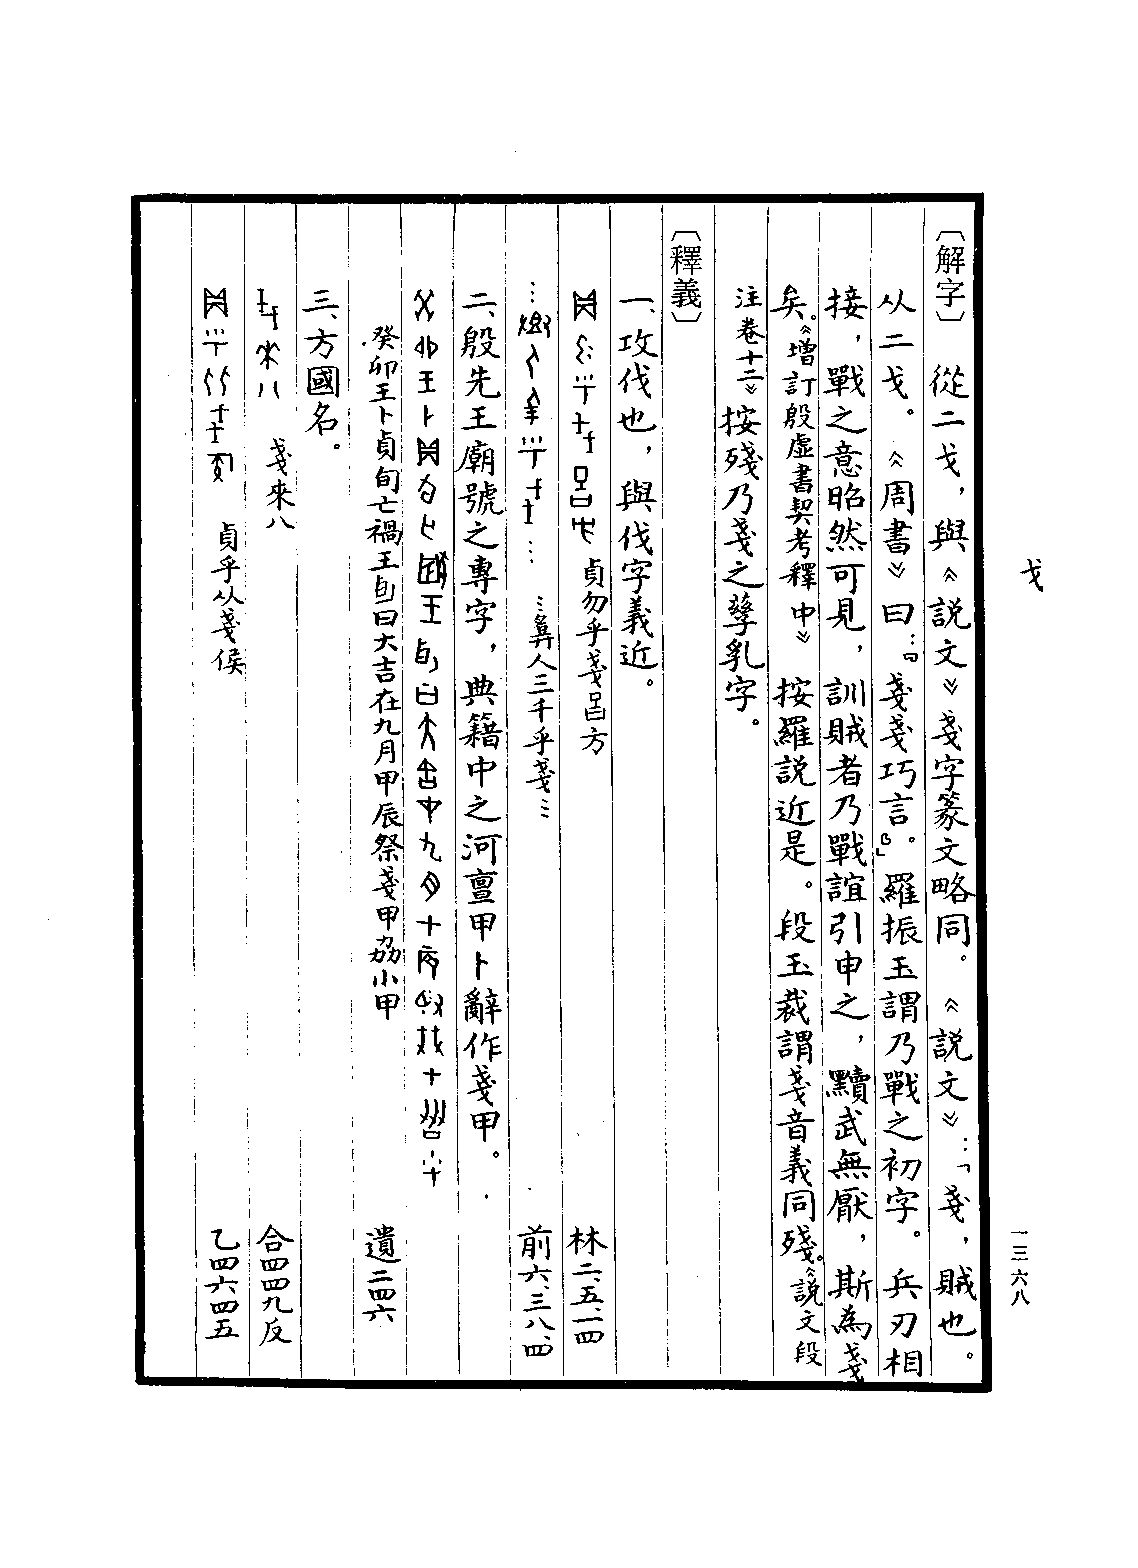 戈
一三六八
〔解字〕從二戈，與《說文》戔字篆文略同。《說文》：「戔，賊也。
从二戈。《周書》曰：『戔戔巧言。』」羅振玉謂乃戰之初字。兵刃相
接，戰之意昭然可見，訓賊者乃戰誼引申之，黷武無厭，斯為戔
矣。《增訂殷虛書契考釋中》按羅說近是。段玉裁謂戔音義同殘。《說文段
注卷十二》按殘乃戔之孳乳字。
〔釋義〕
一、攻伐也，與伐字義近。
貞勿乎戔𠮷方 林二、五、一四
…人三千乎戔… 前六、三八、四
二、殷先王廟號之專字，典籍中之河亶甲卜辭作戔甲。
癸卯王卜貞旬亡禍王曰大吉在九月甲辰祭戔甲劦小甲 遺二四六
三、方國名。
戔來八 合四四九反
貞乎从戔侯 乙四六四五